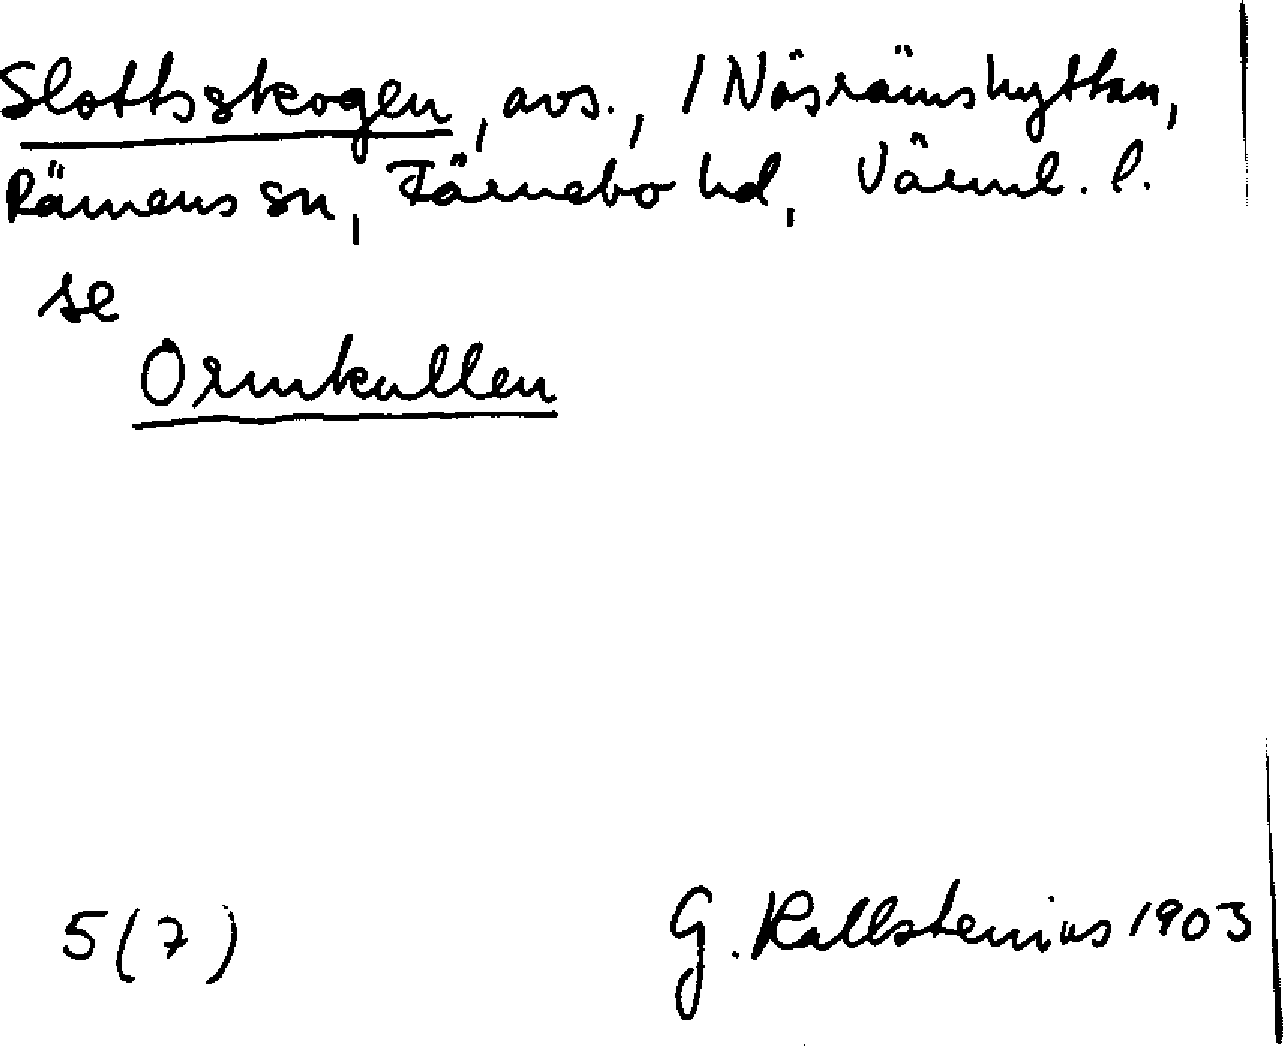 Slottsskogen, avs., / Näsrämshyttan,
Rämens sn, Färnebo hd, Värml. l.
se
Ormkullen
5(7) G. Kallstenius 1903